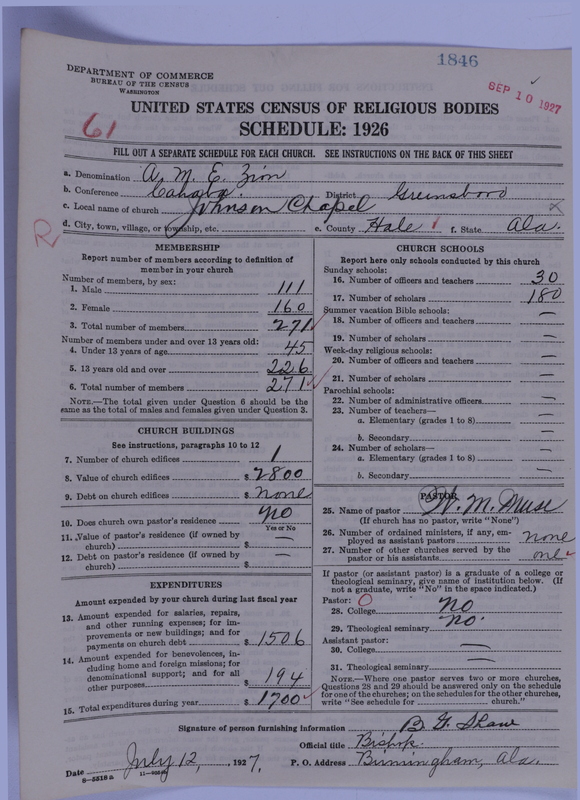 1846
SEP 10 1927
DEPARTMENT OF COMMERCE
BUREAU OF THE CENSUS
WASHINGTON
UNITED STATES CENSUS OF RELIGIOUS BODIES
SCHEDULE: 1926
61
FILL OUT A SEPARATE SCHEDULE FOR EACH CHURCH. SEE INSTRUCTIONS ON THE BACK OF THIS SHEET
a. Denomination A. M. E. Zion
b. Conference Cahaba. District Greensboro
c. Local name of church Johnson Chapel
R
d. City, town, village, or township, etc. e. County Hale f. State Ala.
MEMBERSHIP
Report number of members according to definition of
member in your church
Number of members, by sex:
1. Male 111
2. Female 160
3. Total number of members 271
Number of members under and over 13 years old:
4. Under 13 years of age 45
5. 13 years old and over 226
6. Total number of members 271
NOTE.—The total given under Question 6 should be the
same as the total of males and females given under Question 3.
CHURCH BUILDINGS
See instructions, paragraphs 10 to 12
7. Number of church edifices 1
8. Value of church edifices $ 2800
9. Debt on church edifices $ None
10. Does church own pastor's residence No
Yes or No
11. Value of pastor's residence (if owned by
church) $ —
12. Debt on pastor's residence (if owned by
church) $ —
EXPENDITURES
Amount expended by your church during last fiscal year
13. Amount expended for salaries, repairs,
and other running expenses; for im-
provements or new buildings; and for
payments on church debt $ 1506
14. Amount expended for benevolences, in-
cluding home and foreign missions; for
denominational support; and for all
other purposes $ 194
15. Total expenditures during year $ 1700
CHURCH SCHOOLS
Report here only schools conducted by this church
Sunday schools:
16. Number of officers and teachers 30
17. Number of scholars 180
Summer vacation Bible schools:
18. Number of officers and teachers —
19. Number of scholars —
Week-day religious schools:
20. Number of officers and teachers —
21. Number of scholars —
Parochial schools:
22. Number of administrative officers —
23. Number of teachers—
a. Elementary (grades 1 to 8) —
b. Secondary —
24. Number of scholars—
a. Elementary (grades 1 to 8) —
b. Secondary —
PASTOR
25. Name of pastor W. M. Muse
(If church has no pastor, write "None")
26. Number of ordained ministers, if any, em-
ployed as assistant pastors none
27. Number of other churches served by the
pastor or his assistants one
If pastor (or assistant pastor) is a graduate of a college or
theological seminary, give name of institution below. (If
not a graduate, write "No" in the space indicated.)
Pastor: O
28. College No
29. Theological seminary No.
Assistant pastor:
30. College —
31. Theological seminary —
NOTE.—Where one pastor serves two or more churches,
Questions 28 and 29 should be answered only on the schedule
for one of the churches; on the schedules for the other churches,
write "See schedule for church."
Signature of person furnishing information B. G. Shaw
Official title Bishop.
Date July 12, 1927. P. O. Address Birmingham, Ala.